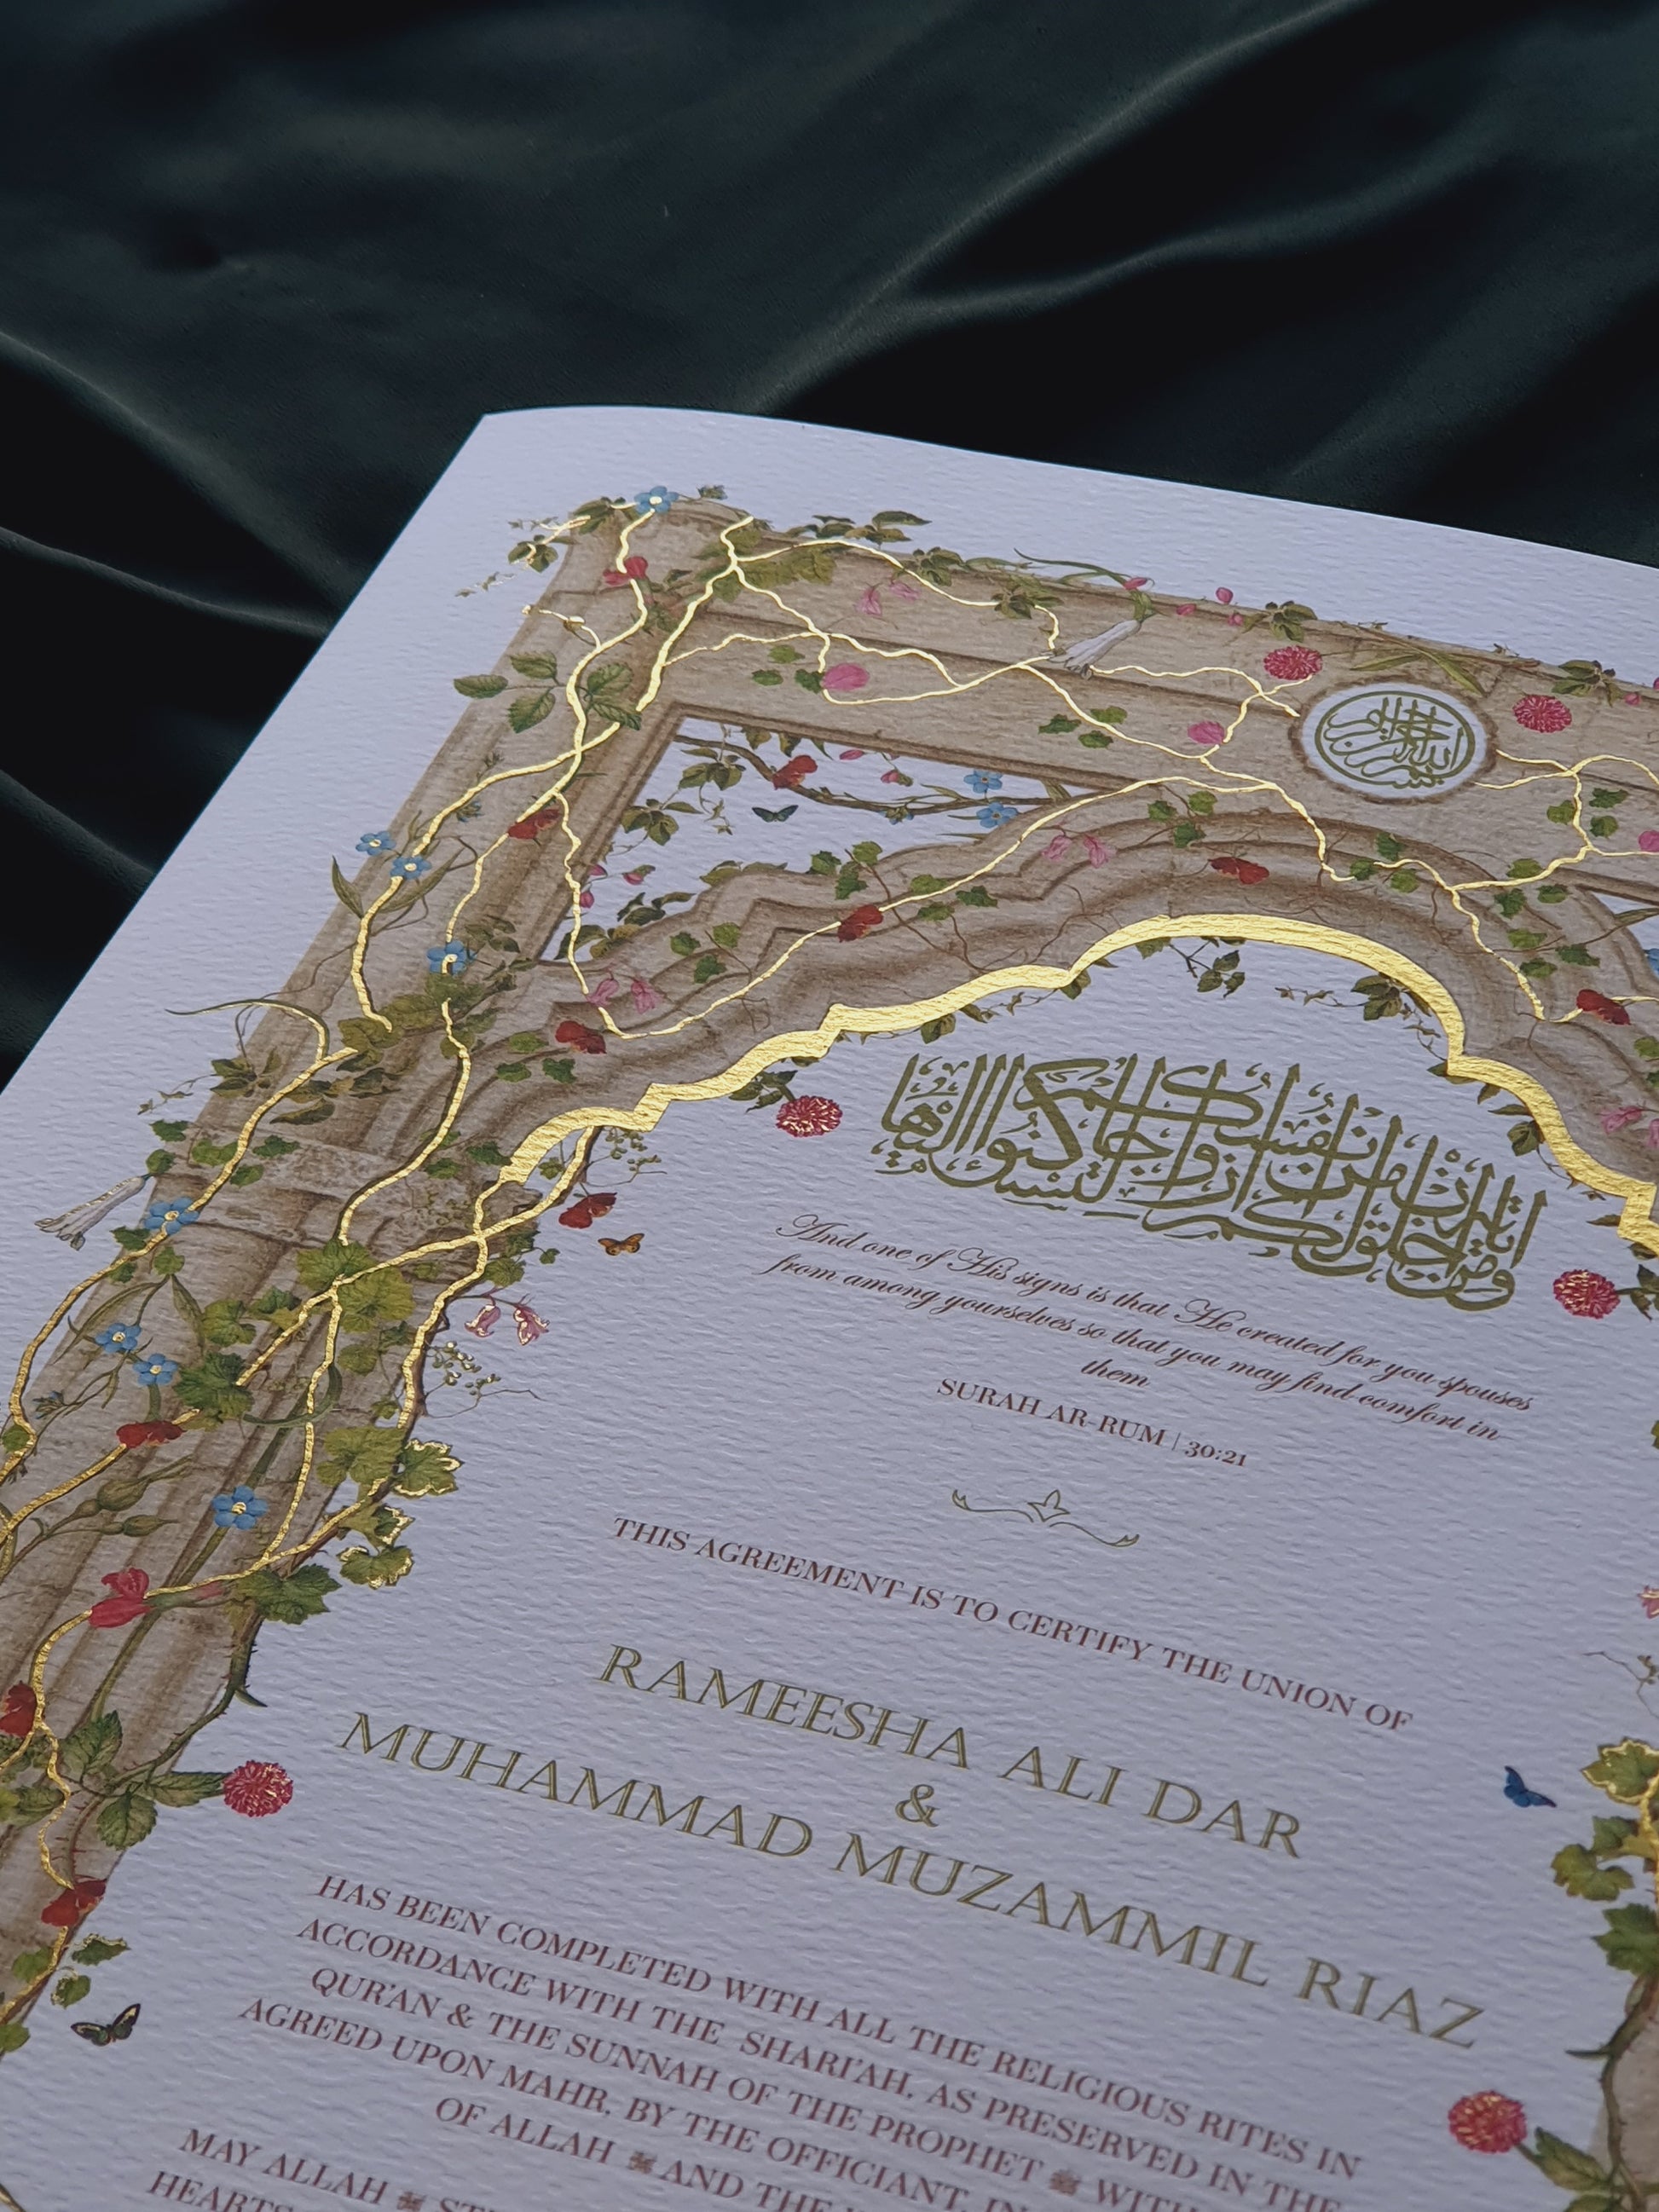 بسم الله الرحمن الرحيم
ومن آياته أن خلق لكم من أنفسكم أزواجا لتسكنوا إليها
And one of His signs is that He created for you spouses
from among yourselves so that you may find comfort in
them
SURAH AR-RUM | 30:21
THIS AGREEMENT IS TO CERTIFY THE UNION OF
RAMEESHA ALI DAR
&
MUHAMMAD MUZAMMIL RIAZ
HAS BEEN COMPLETED WITH ALL THE RELIGIOUS RITES IN
ACCORDANCE WITH THE SHARI'AH, AS PRESERVED IN THE
QUR'AN & THE SUNNAH OF THE PROPHET ﷺ WITH
AGREED UPON MAHR, BY THE OFFICIANT, IN
OF ALLAH ﷻ AND THE
MAY ALLAH ﷻ
HEARTS